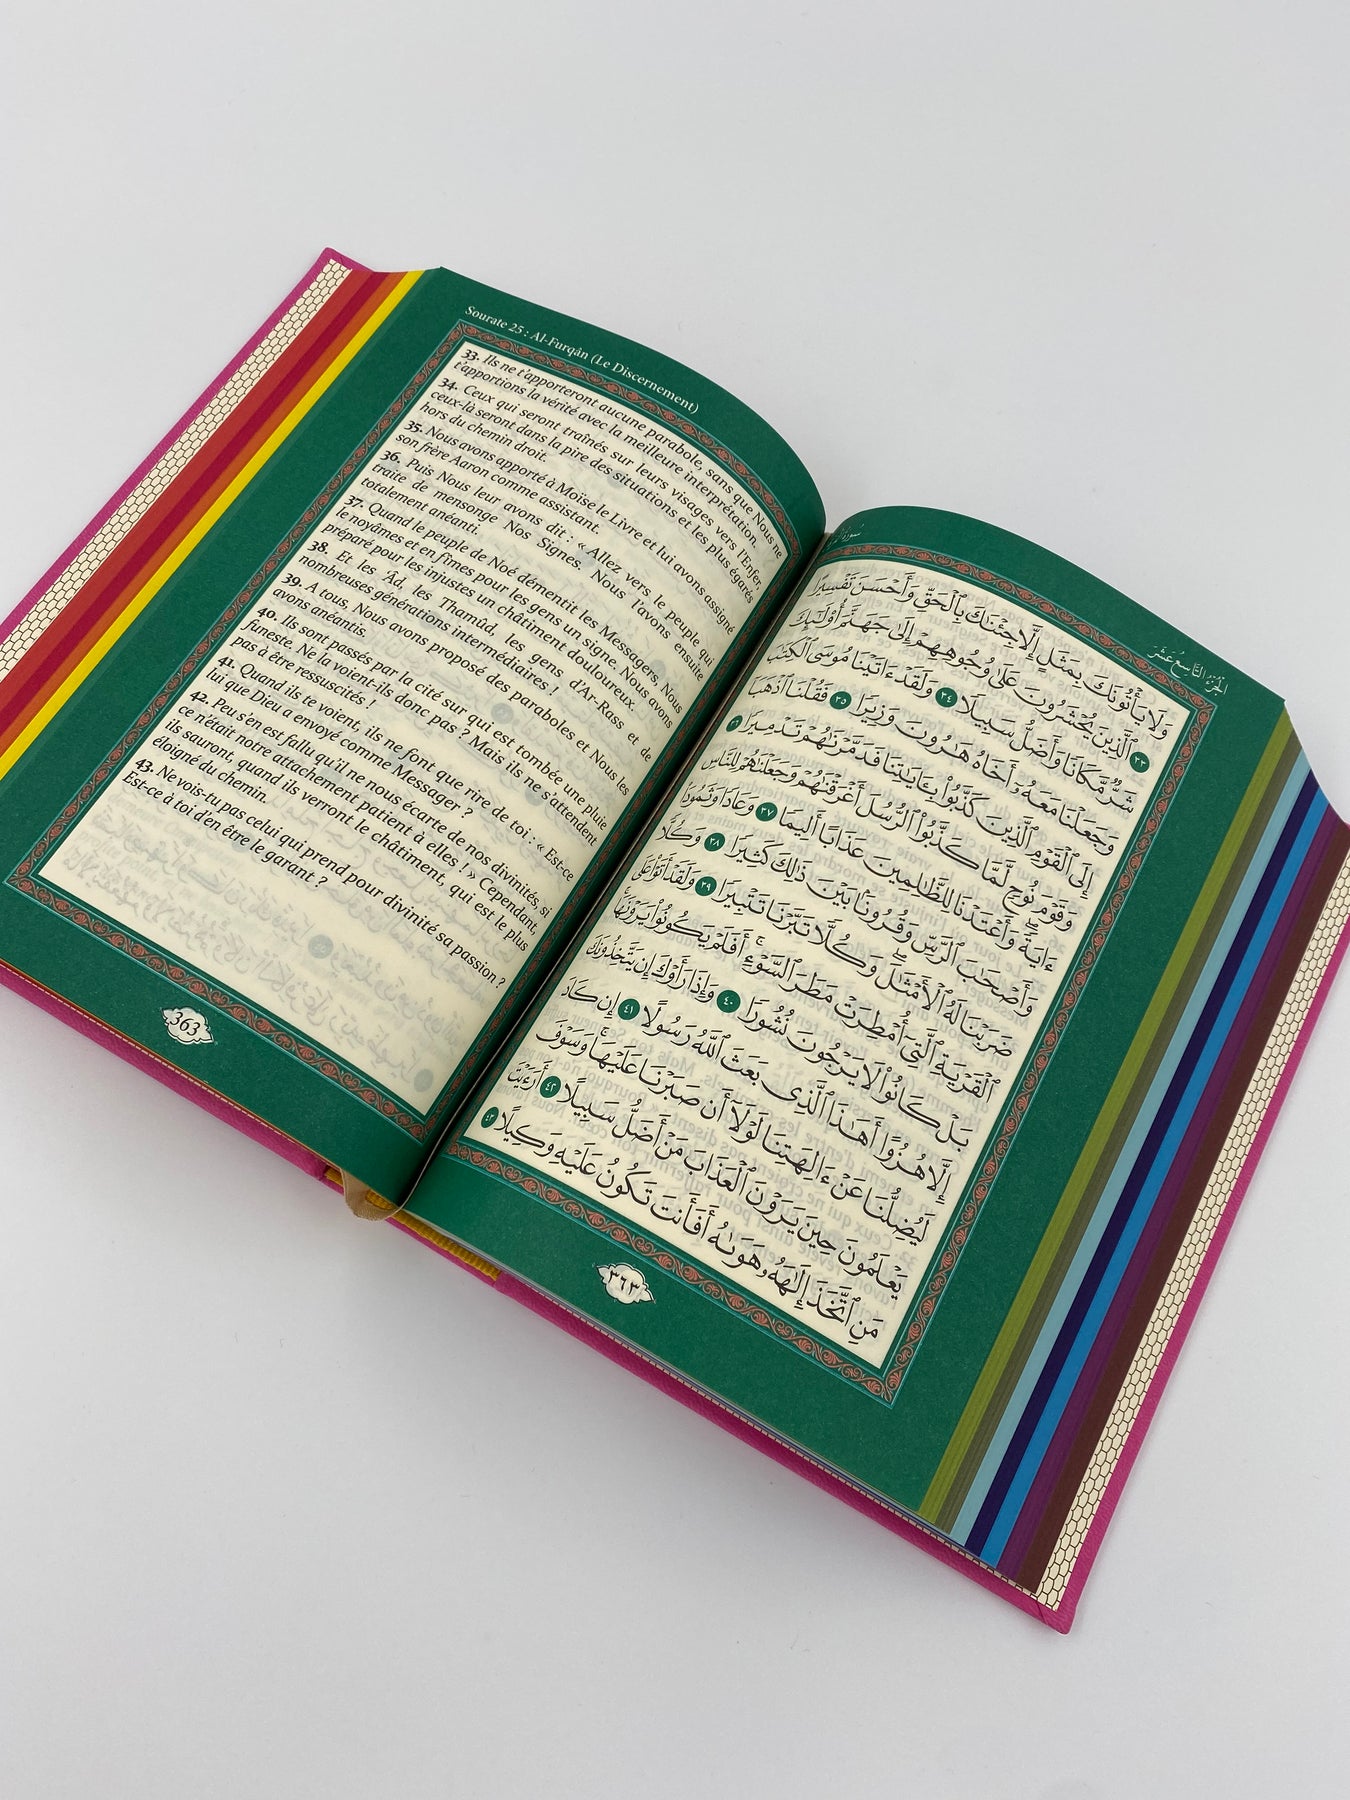 Sourate 25 : Al-Furqân (Le Discernement)
33. Ils ne t'apporteront aucune parabole, sans que Nous ne
t'apportions la vérité avec la meilleure interprétation.
34. Ceux qui seront traînés sur leurs visages vers l'Enfer,
ceux-là seront dans la pire des situations et les plus égarés
hors du chemin droit.
35. Nous avons apporté à Moïse le Livre et lui avons assigné
son frère Aaron comme assistant.
36. Puis Nous leur avons dit : « Allez vers le peuple qui
traite de mensonge Nos Signes. Nous l'avons ensuite
totalement anéanti.
37. Quand le peuple de Noé démentit les Messagers, Nous
le noyâmes et en fîmes pour les gens un signe. Nous avons
préparé pour les injustes un châtiment douloureux.
38. Et les 'Ad, les Thamûd, les gens d'Ar-Rass et de
nombreuses générations intermédiaires !
39. A tous, Nous avons proposé des paraboles et Nous les
avons anéantis.
40. Ils sont passés par la cité sur qui est tombée une pluie
funeste. Ne la voient-ils donc pas ? Mais ils ne s'attendent
pas à être ressuscités !
41. Quand ils te voient, ils ne font que rire de toi : « Est-ce
lui que Dieu a envoyé comme Messager ?
42. Peu s'en est fallu qu'il ne nous écarte de nos divinités, si
ce n'était notre attachement patient à elles ! » Cependant,
ils sauront, quand ils verront le châtiment, qui est le plus
éloigné du chemin.
43. Ne vois-tu pas celui qui prend pour divinité sa passion ?
Est-ce à toi d'en être le garant ?
363
الجُزْءُ التَّاسِعَ عَشَرَ
وَلَا يَأْتُونَكَ بِمَثَلٍ إِلَّا جِئْنَٰكَ بِٱلْحَقِّ وَأَحْسَنَ تَفْسِيرًا
٣٣ ٱلَّذِينَ يُحْشَرُونَ عَلَىٰ وُجُوهِهِمْ إِلَىٰ جَهَنَّمَ أُو۟لَٰٓئِكَ
شَرٌّ مَّكَانًا وَأَضَلُّ سَبِيلًا ٣٤ وَلَقَدْ ءَاتَيْنَا مُوسَى ٱلْكِتَٰبَ
وَجَعَلْنَا مَعَهُۥٓ أَخَاهُ هَٰرُونَ وَزِيرًا ٣٥ فَقُلْنَا ٱذْهَبَآ
إِلَى ٱلْقَوْمِ ٱلَّذِينَ كَذَّبُوا۟ بِـَٔايَٰتِنَا فَدَمَّرْنَٰهُمْ تَدْمِيرًا ٣٦
وَقَوْمَ نُوحٍ لَّمَّا كَذَّبُوا۟ ٱلرُّسُلَ أَغْرَقْنَٰهُمْ وَجَعَلْنَٰهُمْ لِلنَّاسِ
ءَايَةً ۖ وَأَعْتَدْنَا لِلظَّٰلِمِينَ عَذَابًا أَلِيمًا ٣٧ وَعَادًا وَثَمُودَا۟
وَأَصْحَٰبَ ٱلرَّسِّ وَقُرُونًۢا بَيْنَ ذَٰلِكَ كَثِيرًا ٣٨ وَكُلًّا
ضَرَبْنَا لَهُ ٱلْأَمْثَٰلَ ۖ وَكُلًّا تَبَّرْنَا تَتْبِيرًا ٣٩ وَلَقَدْ أَتَوْا۟ عَلَى
ٱلْقَرْيَةِ ٱلَّتِىٓ أُمْطِرَتْ مَطَرَ ٱلسَّوْءِ ۚ أَفَلَمْ يَكُونُوا۟ يَرَوْنَهَا ۚ
بَلْ كَانُوا۟ لَا يَرْجُونَ نُشُورًا ٤٠ وَإِذَا رَأَوْكَ إِن يَتَّخِذُونَكَ
إِلَّا هُزُوًا أَهَٰذَا ٱلَّذِى بَعَثَ ٱللَّهُ رَسُولًا ٤١ إِن كَادَ
لَيُضِلُّنَا عَنْ ءَالِهَتِنَا لَوْلَآ أَن صَبَرْنَا عَلَيْهَا ۚ وَسَوْفَ
يَعْلَمُونَ حِينَ يَرَوْنَ ٱلْعَذَابَ مَنْ أَضَلُّ سَبِيلًا ٤٢ أَرَءَيْتَ
مَنِ ٱتَّخَذَ إِلَٰهَهُۥ هَوَىٰهُ أَفَأَنتَ تَكُونُ عَلَيْهِ وَكِيلًا ٤٣
٣٦٣